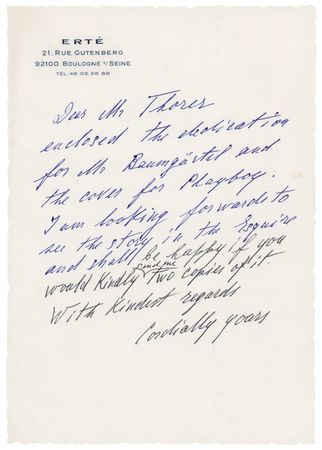 ERTÉ
21, RUE GUTENBERG
92100 BOULOGNE s/SEINE
TÉL. 46 05 26 89
Dear Mr Thorer
enclosed the dedication
for Mr Baumgästel and
the cover for Playboy.
I am looking forwards to
see the story in the Esquire
and shall be happy if you
would kindly send me two copies of it
With Kindest regards
Cordially yours